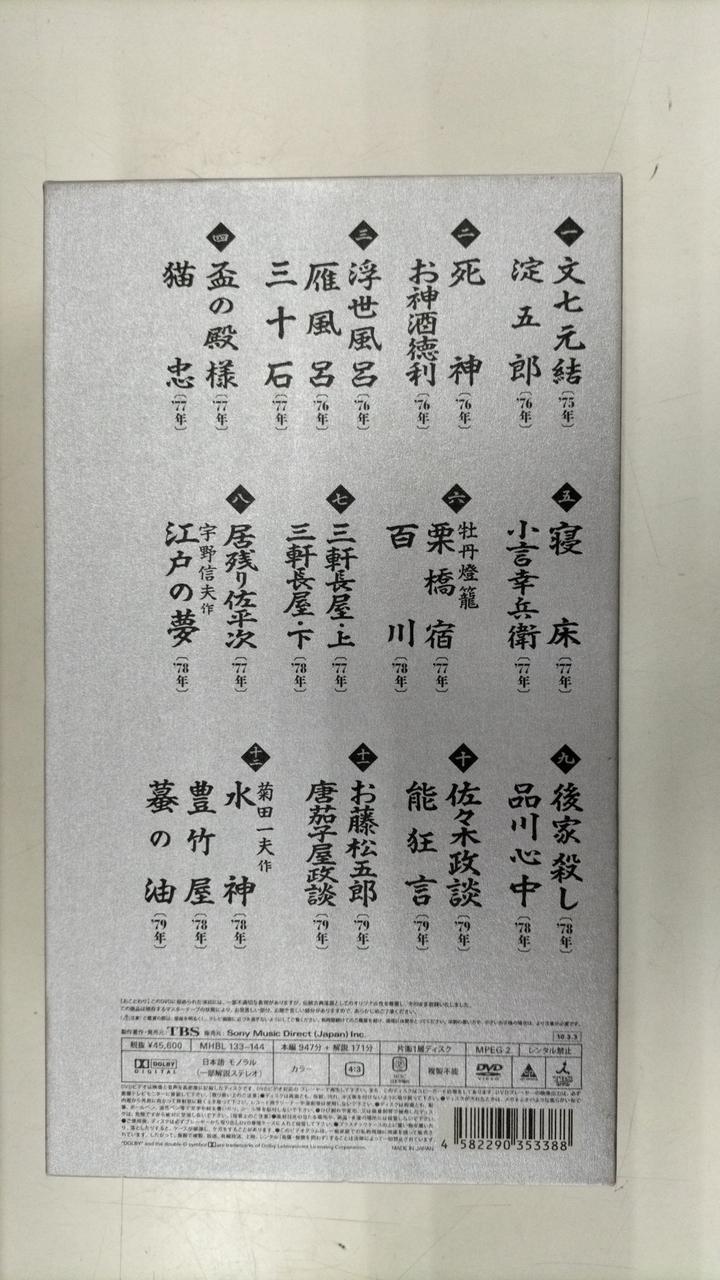 一
文七元結（'75年）
淀五郎（'76年）
二
死神（'76年）
お神酒徳利（'76年）
三
浮世風呂（'76年）
雁風呂（'76年）
三十石（'77年）
四
盃の殿様（'77年）
猫忠（'77年）
五
寝床（'77年）
小言幸兵衛（'77年）
六
牡丹燈籠
栗橋宿（'77年）
百川（'78年）
七
三軒長屋・上（'77年）
三軒長屋・下（'78年）
八
居残り佐平次（'77年）
宇野信夫作
江戸の夢（'78年）
九
後家殺し（'78年）
品川心中（'78年）
十
佐々木政談（'79年）
能狂言（'79年）
十一
お藤松五郎（'79年）
唐茄子屋政談（'79年）
十二
菊田一夫作
水神（'78年）
豊竹屋（'78年）
蟇の油（'79年）
製作著作・発売元：TBS 販売元：Sony Music Direct (Japan) Inc. 10.3.3
税抜 ¥45,600 MHBL 133-144 本編 947分＋解説 171分 片面1層ディスク MPEG-2 レンタル禁止
DOLBY DIGITAL 日本語 モノラル（一部解説ステレオ） カラー 4:3 複製不能 DVD VIDEO
4 582290 353388
"DOLBY" and the double-D symbol are trademarks of Dolby Laboratories Licensing Corporation. MADE IN JAPAN